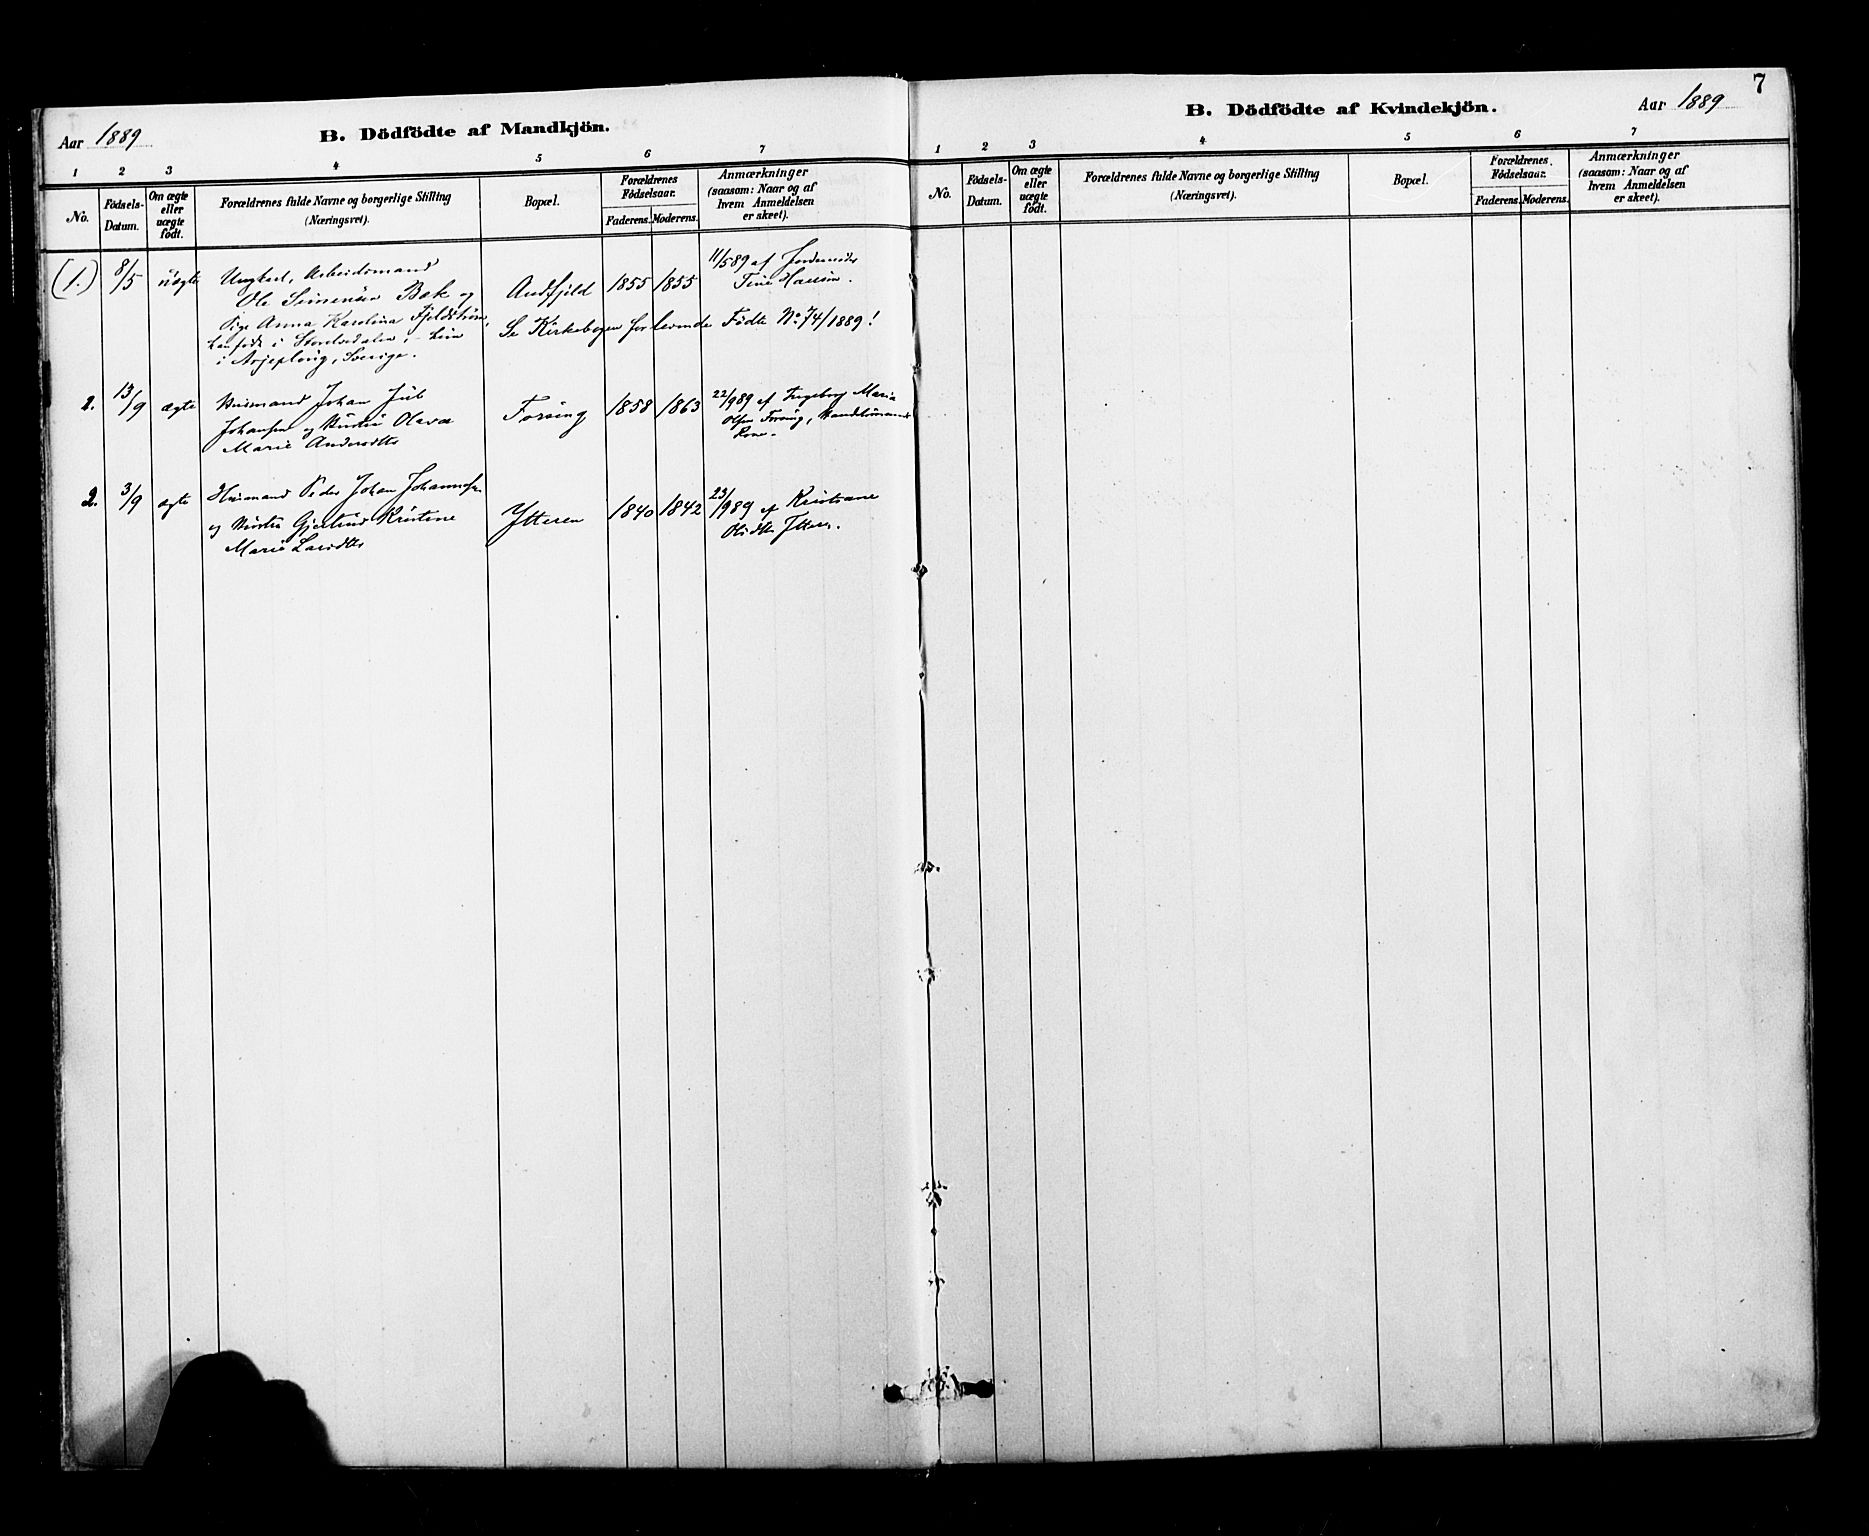 Aar 1889
B. Dödfödte af Mandkjön.
1 2 3 4 5 6 7
No.
Födsels-Datum.
Om ægte eller uægte födt.
Forældrenes fulde Navne og borgerlige Stilling (Næringsvei).
Bopæl.
Forældrenes Födselsaar.
Faderens. Moderens.
Anmærkninger (saasom: Naar og af hvem Anmeldelsen er skeet).
(1.) 8/5 uægte Ungkarl, Arbeidsmand
Ole Simensen Bæk og
Pige Anna Karolina Fjeldström,
han født i
i Arjeploug, Sverige.
Andfjeld 1855 1855
11/5 89 af Jordemoder
Tine Hansen.
Se Kirkebogen for levende Födte No. 74/1889!
2. 13/9 ægte Husmand Johan Jüb
Johansen og Hustru Olava
Marie Andersdtr
Forsing 1858 1863
22/9 89 af Ingeborg Maria
Olsen Forsing,
Kone.
2. 3/9 ægte Husmand Peder Johan Johannesen
og Hustru Gjertrud Kristine
Marie Larsdtr
Ytteren 1840 1842
23/9 89 af Kristiane
Olsdtr Ytteren.
7
B. Dödfödte af Kvindekjön.
Aar 1889
1 2 3 4 5 6 7
No.
Födsels-Datum.
Om ægte eller uægte födt.
Forældrenes fulde Navne og borgerlige Stilling (Næringsvei).
Bopæl.
Forældrenes Födselsaar.
Faderens. Moderens.
Anmærkninger (saasom: Naar og af hvem Anmeldelsen er skeet).